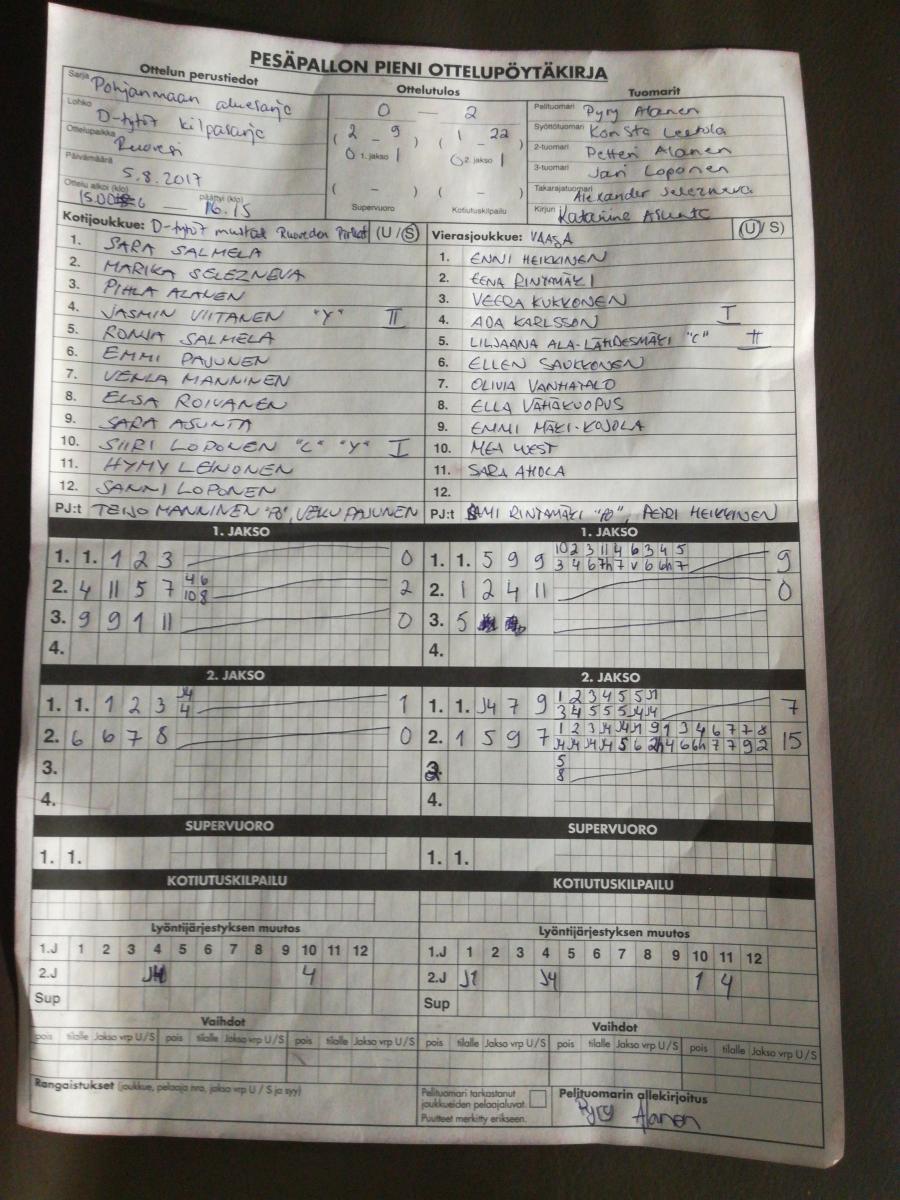 PESÄPALLON PIENI OTTELUPÖYTÄKIRJA
Ottelun perustiedot
Sarja Pohjanmaan aluesarja
Lohko D-tytöt kilpasarja
Ottelupaikka Ruovesi
Päivämäärä 5.8.2017
Ottelu alkoi (klo) päättyi (klo)
15.00 — 16.15
Ottelutulos
0 — 2
( 2 – 9 ) ( 1 – 22 )
0 1. jakso 1 0 2. jakso 1
( – ) ( – )
Supervuoro Kotiutuskilpailu
Tuomarit
Pelituomari Pyry Alanen
Syöttötuomari Konsta Leetola
2-tuomari Petteri Alanen
3-tuomari Jari Loponen
Takarajatuomari Alexander Selezneva
Kirjuri Katariina Asunta
Kotijoukkue: D-tytöt mustat Ruoveden Pirkat (U/S)
1. SARA SALMELA
2. MARIKA SELEZNEVA
3. PIHLA ALANEN
4. JASMIN VIITANEN "Y" II
5. RONJA SALMELA
6. EMMI PAJUNEN
7. VENLA MANNINEN
8. ELSA ROIVANEN
9. SARA ASUNTA
10. SIIRI LOPONEN "C" "Y" I
11. HYMY LEINONEN
12. SANNI LOPONEN
PJ:t TEIJO MANNINEN "PJ", VEKU PAJUNEN
Vierasjoukkue: VAASA (U/S)
1. ENNI HEIKKINEN
2. EENA RINTAMÄKI
3. VEERA KUKKONEN
4. ADA KARLSSON I
5. LILJAANA ALA-LÄHDESMÄKI "C" II
6. ELLEN SAUKKONEN
7. OLIVIA VANHATALO
8. ELLA VÄHÄKUOPUS
9. EMMI MÄKI-KOJOLA
10. MEA WEST
11. SARA AHOLA
12.
PJ:t SAMI RINTAMÄKI "PJ", PETRI HEIKKINEN
1. JAKSO
1. 1. 1 2 3 0
2. 4 11 5 7 4 6 2
10 8
3. 9 9 1 11 0
4.
1. JAKSO
1. 1. 5 9 9 10 2 3 11 4 6 3 4 5 9
3 4 6 7h 7 v 6 6h 7
2. 1 2 4 11 0
3. 5
4.
2. JAKSO
1. 1. 1 2 3 J4 1
4
2. 6 6 7 8 0
3.
4.
2. JAKSO
1. 1. J4 7 9 1 2 3 4 5 5 J1 7
3 4 5 5 5 J4 J4
2. 1 5 9 7 1 2 3 J4 J4 J1 9 1 3 4 6 7 7 8 15
J4 J4 J4 J4 5 6 2h 4 6 6h 7 7 9 2
3. 5
8
4.
SUPERVUORO
1. 1.
SUPERVUORO
1. 1.
KOTIUTUSKILPAILU
KOTIUTUSKILPAILU
Lyöntijärjestyksen muutos
1.J 1 2 3 4 5 6 7 8 9 10 11 12
2.J J4 4
Sup
Lyöntijärjestyksen muutos
1.J 1 2 3 4 5 6 7 8 9 10 11 12
2.J J1 J4 1 4
Sup
Vaihdot
pois tilalle Jakso vrp U/S pois tilalle Jakso vrp U/S pois tilalle Jakso vrp U/S
Vaihdot
pois tilalle Jakso vrp U/S pois tilalle Jakso vrp U/S pois tilalle Jakso vrp U/S
Rangaistukset (joukkue, pelaaja nro, jakso vrp U / S ja syy)
Pelituomari tarkastanut
joukkueiden pelaajaluvat.
Puutteet merkitty erikseen.
Pelituomarin allekirjoitus
Pyry Alanen